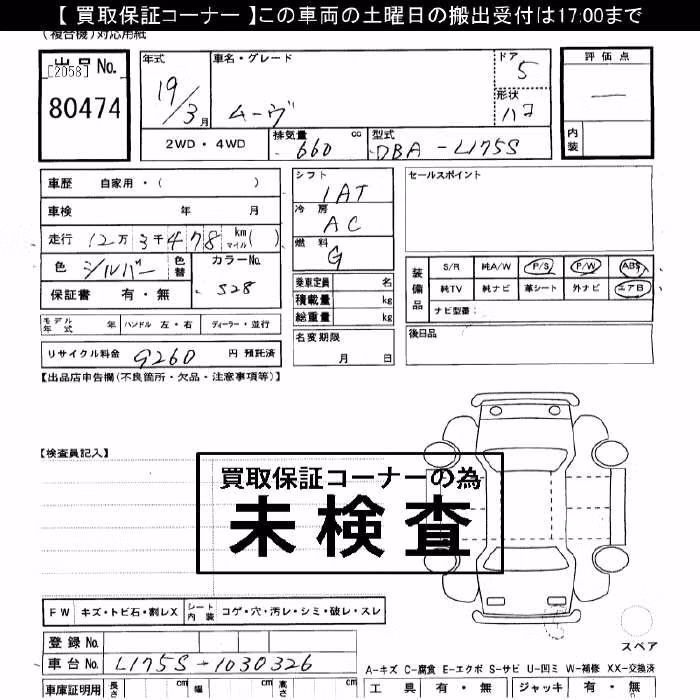 【 買取保証コーナー 】この車両の土曜日の搬出受付は17:00まで
(複合機)対応用紙
出品No.
[2058]
80474
年式
19/3月
車名・グレード
ムーヴ
ドア
5
形状
ハコ
2WD・4WD
排気量 660 cc
型式 DBA-L175S
評価点
―
内装
車歴 自家用・( )
車検 年 月
走行 12万3千478 km マイル( )
色 シルバー 色替
カラーNo. S28
保証書 有・無
モデル年式 年 ハンドル 左・右 ディーラー・並行
リサイクル料金 9260 円 預託済
シフト
IAT
冷房
AC
燃料
G
乗車定員 名
積載量 kg
総重量 kg
名変期限
月 日
セールスポイント
装備品
S/R 純A/W P/S P/W ABS
純TV 純ナビ 革シート 外ナビ エアB
ナビ型番:
後日品
【出品店申告欄(不良箇所・欠品・注意事項等)】
【検査員記入】
買取保証コーナーの為
未検査
FW キズ・トビ石・割レX シート内装 コゲ・穴・汚レ・シミ・破レ・スレ
登録No.
車台No. L175S-1030326
車庫証明用 長さ cm 幅 cm 高さ cm
スペア
A-キズ C-腐食 E-エクボ S-サビ U-凹ミ W-補修 XX-交換済
工具 有・無 ジャッキ 有・無